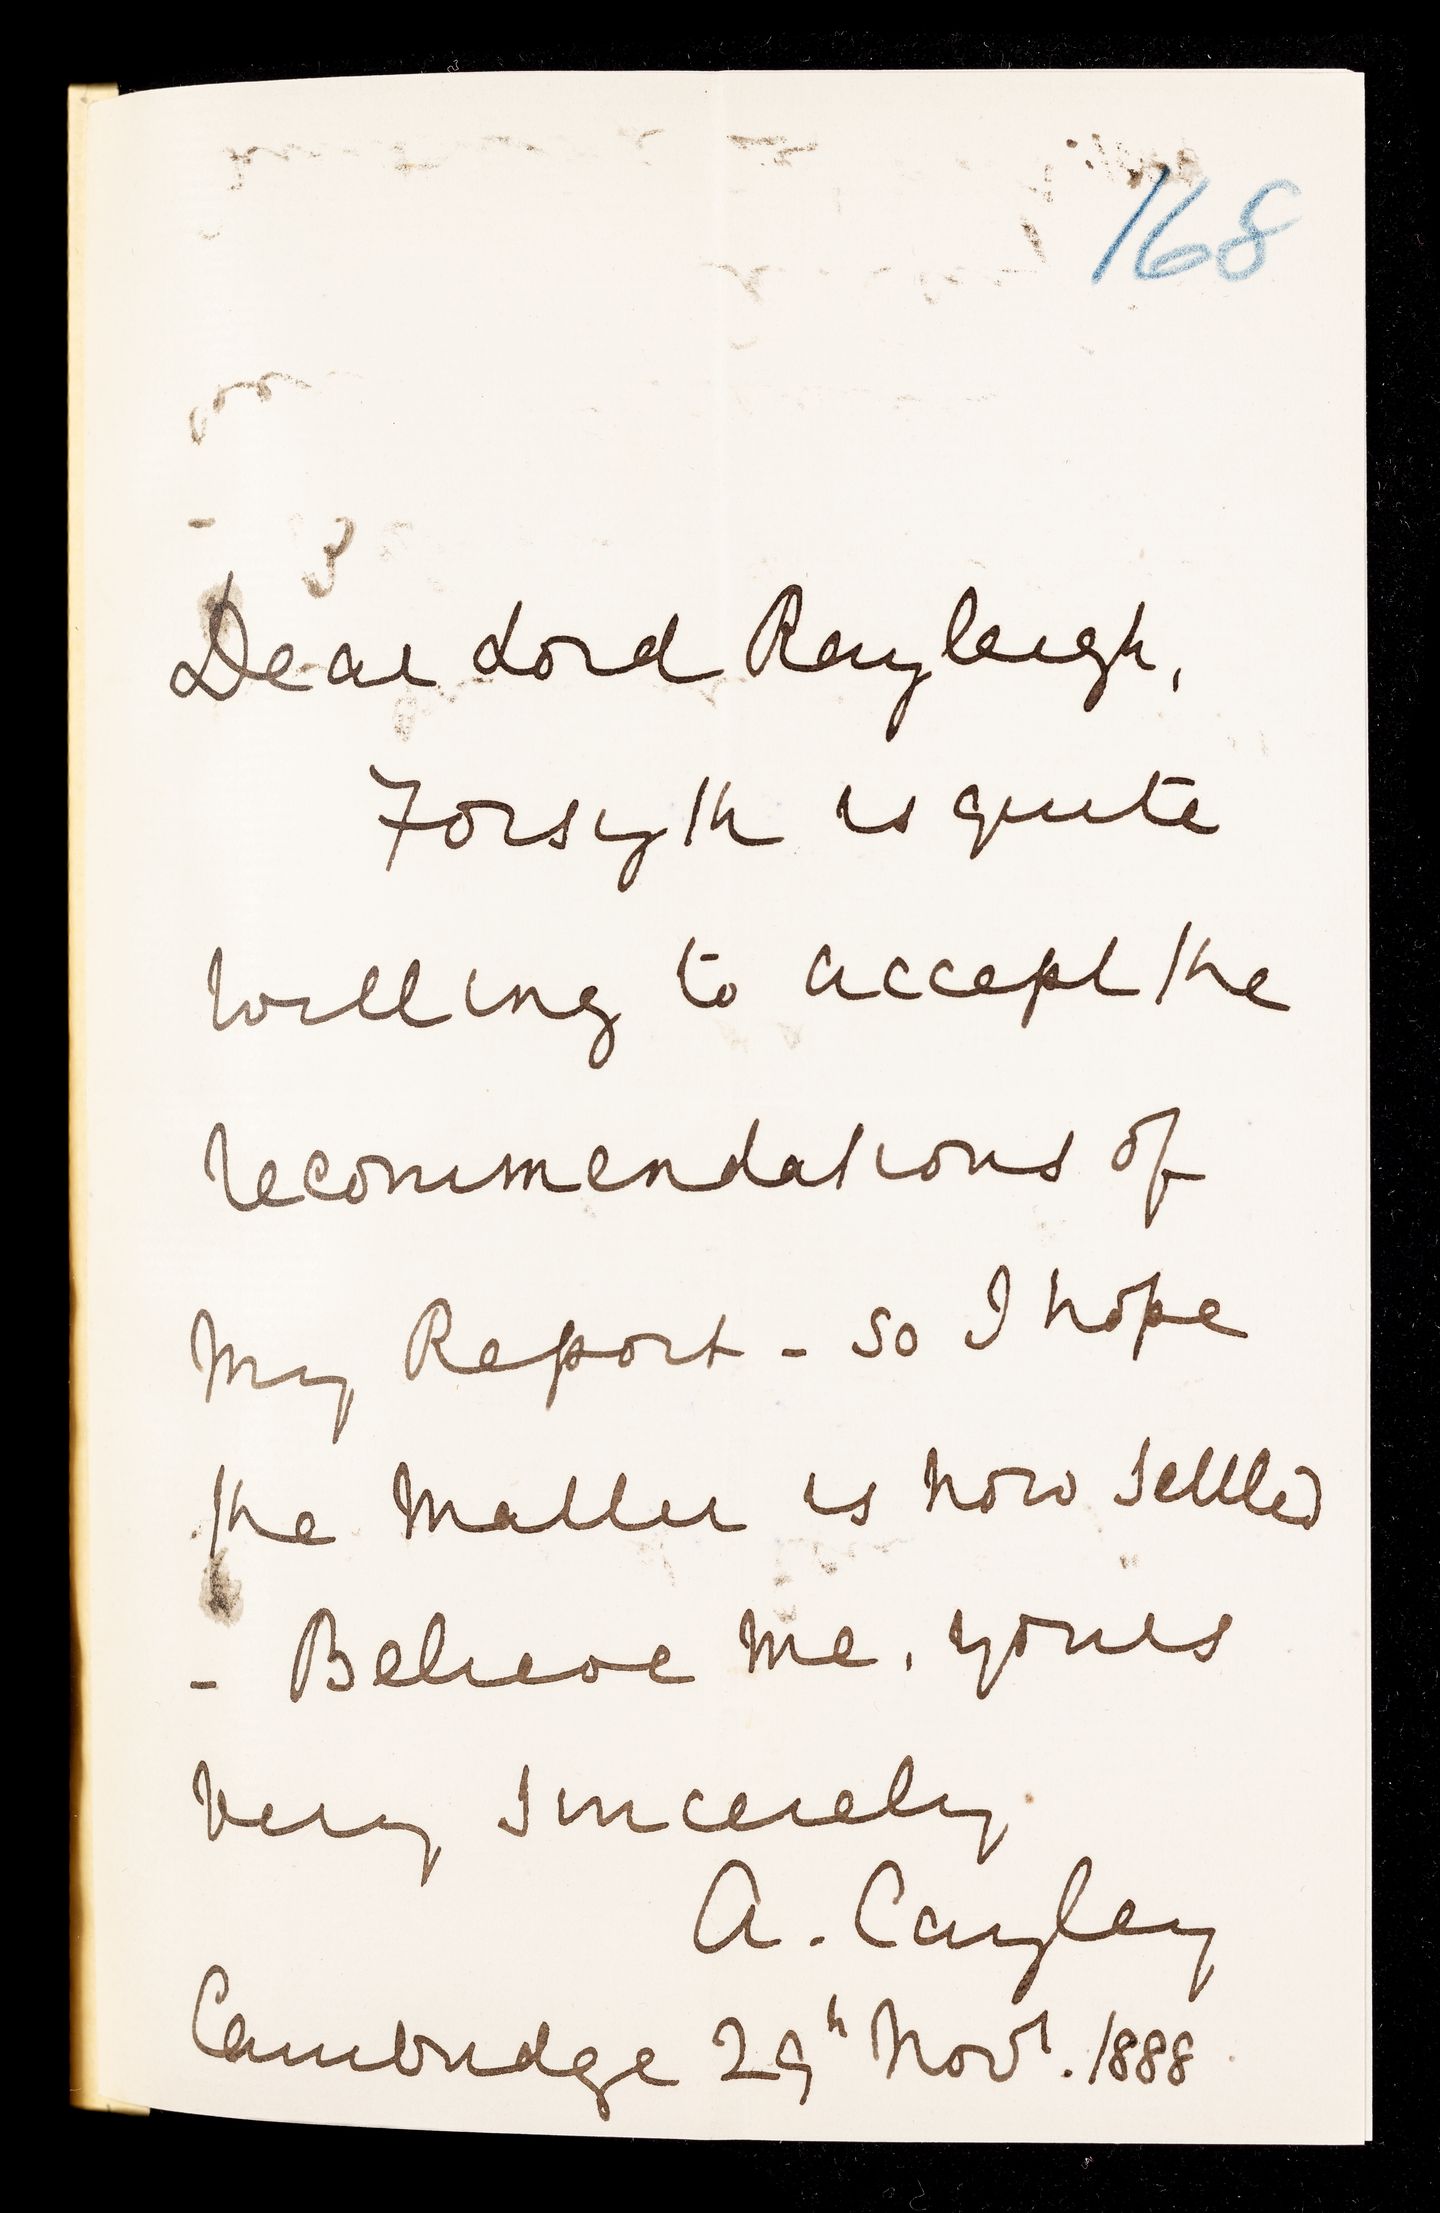 168
Dear Lord Rayleigh,
Forsyth is quite
willing to accept the
recommendations of
my Report - so I hope
the matter is now settled
- Believe me, yours
very sincerely
A. Cayley
Cambridge 29th Novr. 1888